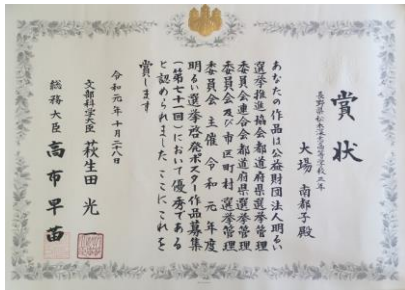 賞状
大場 南都子 殿
あなたの作品は公益財団法人明るい
選挙推進協会都道府県選挙管理
委員会連合会都道府県選挙管理
委員会及び市区町村選挙管理
委員会主催令和元年度
明るい選挙啓発ポスター作品募集
(第七十一回)において優秀である
と認められました ここにこれを
賞します
令和元年十月二十八日
文部科学大臣 萩生田 光一
総務大臣 高市早苗